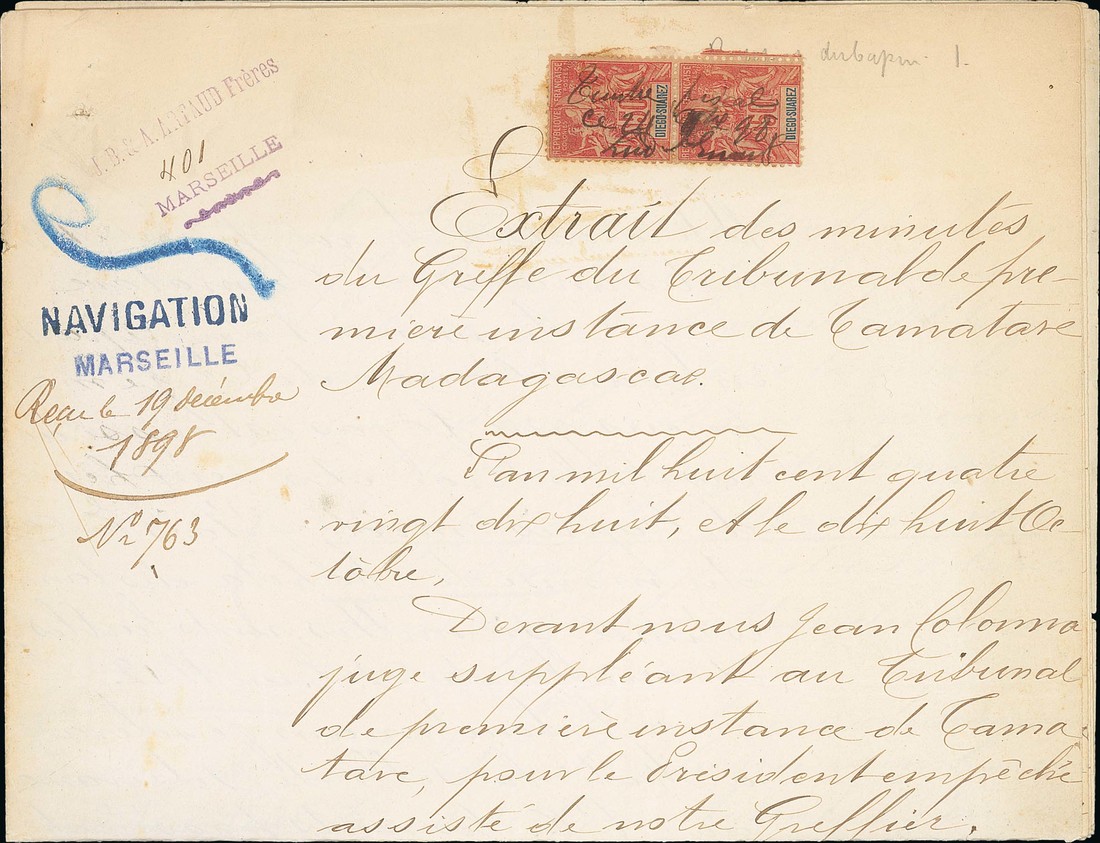 J. B. & A. ARFAUD Frères
401
MARSEILLE
NAVIGATION
MARSEILLE
Reçu le 19 décembre
1898
No 763
1.
DIEGO-SUAREZ
DIEGO-SUAREZ
Timbre fiscal
ce 24 98
Extrait des minutes
du Greffe du Tribunal de pre-
mière instance de Tamatave
Madagascar.
L'an mil huit cent quatre
vingt dix huit, et le dix huit Oc-
tobre,
Devant nous Jean Colonna
juge suppléant au Tribunal
de première instance de Tama-
tave, pour le Président empêché
assisté de notre Greffier.